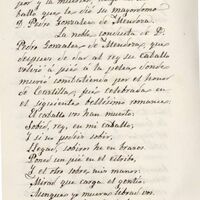 por y la muerte, muy
ballo que le dió su mayordomo
D. Pedro Gonzalez de Mendoza.
La noble conducta de D.
Pedro Gonzalez de Mendoza, que
despues de dar al rey su caballo
volvió á pié á la pelea donde
murió combatiendo por el honor
de Castilla, fué celebrada en
el siguiente bellísimo romance.
El caballo vos han muerto:
Sobid, rey, en mi caballo,
Y si no podeis sobir,
Llegad, sobiros he en brazos.
Poned un pié en el estribo,
Y el otro sobre mis manos:
Mirad que carga el gentío,
Aunque yo muera libradvos.